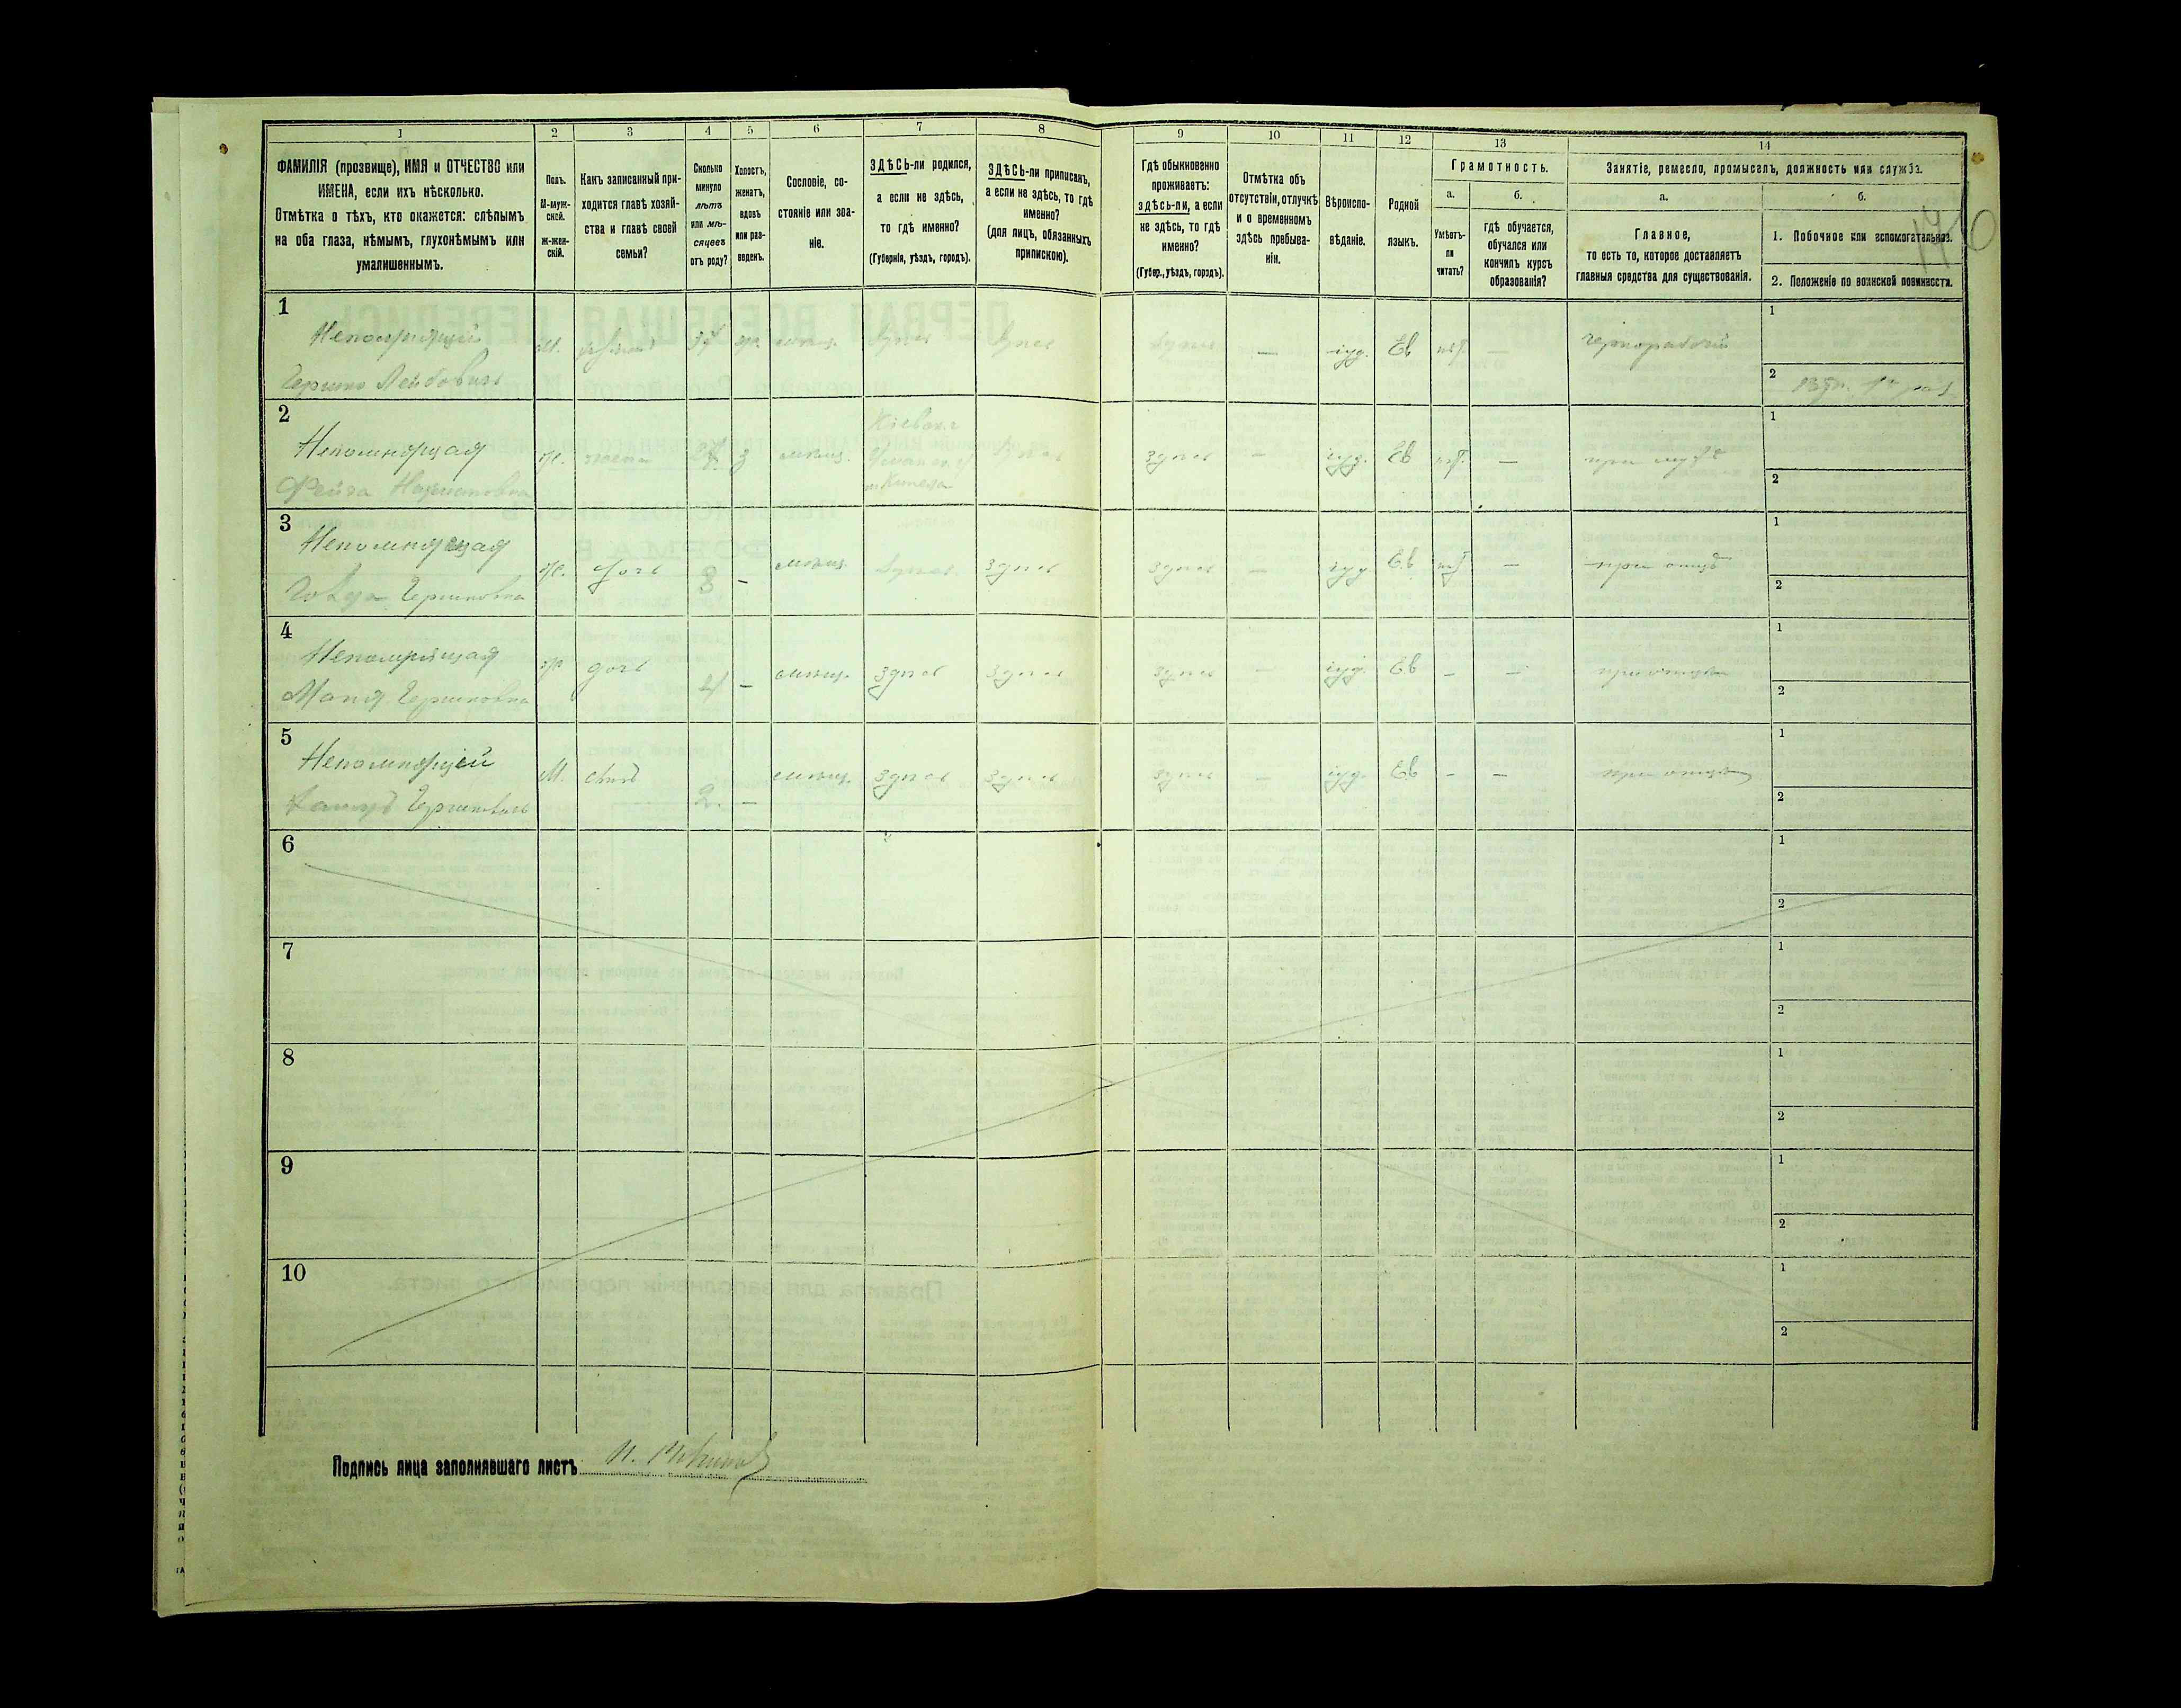 1 2 3 4 5 6 7 8 9 10 11 12 13 14
ФАМИЛІЯ (прозвище), ИМЯ и ОТЧЕСТВО или
ИМЕНА, если ихъ нѣсколько.
Отмѣтка о тѣхъ, кто окажется: слѣпымъ
на оба глаза, нѣмымъ, глухонѣмымъ или
умалишеннымъ.
Полъ.
М-муж-
ской.
ж-жен-
скій.
Какъ записанный при-
ходится главѣ хозяй-
ства и главѣ своей
семьи?
Сколько
минуло
лѣтъ
или мѣ-
сяцевъ
отъ роду?
Холостъ,
женатъ,
вдовъ
или раз-
веденъ.
Сословіе, со-
стояніе или зва-
ніе.
ЗДѢСЬ-ли родился,
а если не здѣсь,
то гдѣ именно?
(Губернія, уѣздъ, городъ).
ЗДѢСЬ-ли приписанъ,
а если не здѣсь, то гдѣ
именно?
(для лицъ, обязанныхъ
припискою).
Гдѣ обыкновенно
проживаетъ:
здѣсь-ли, а если
не здѣсь, то гдѣ
именно?
(Губер., уѣздъ, городъ).
Отмѣтка объ
отсутствіи, отлучкѣ
и о временномъ
здѣсь пребыва-
ніи.
Вѣроиспо-
вѣданіе.
Родной
языкъ.
Грамотность.
а. б.
Умѣетъ-
ли
читать?
гдѣ обучается,
обучался или
кончилъ курсъ
образованія?
Занятіе, ремесло, промыселъ, должность или служба.
а. б.
Главное,
то есть то, которое доставляетъ
главныя средства для существованія.
1. Побочное или вспомогательное.
2. Положеніе по воинской повинности.
1
Непомнящій М. іуд. Ев чернорабочій 1
Гершко Лейбовичъ 2
2
Кіевск. г
Непомнящая ж. жена мѣщ. здѣсь здѣсь — іуд. Ев — при мужѣ 1
2
3
Непомнящая ж. дочь 8 — мѣщ. здѣсь здѣсь здѣсь — іуд. Ев — при отцѣ 1
Гершковна 2
4
Непомнящая ж дочь 4 — мѣщ. здѣсь здѣсь здѣсь — іуд. Ев — — при отцѣ 1
Маня Гершковна 2
5
Непомнящій М. сынъ 2. — мѣщ. здѣсь здѣсь здѣсь — іуд. Ев — — при отцѣ 1
Гершковичъ 2
6 1
2
7 1
2
8 1
2
9 1
2
10 1
2
Подпись лица заполнявшаго листъ